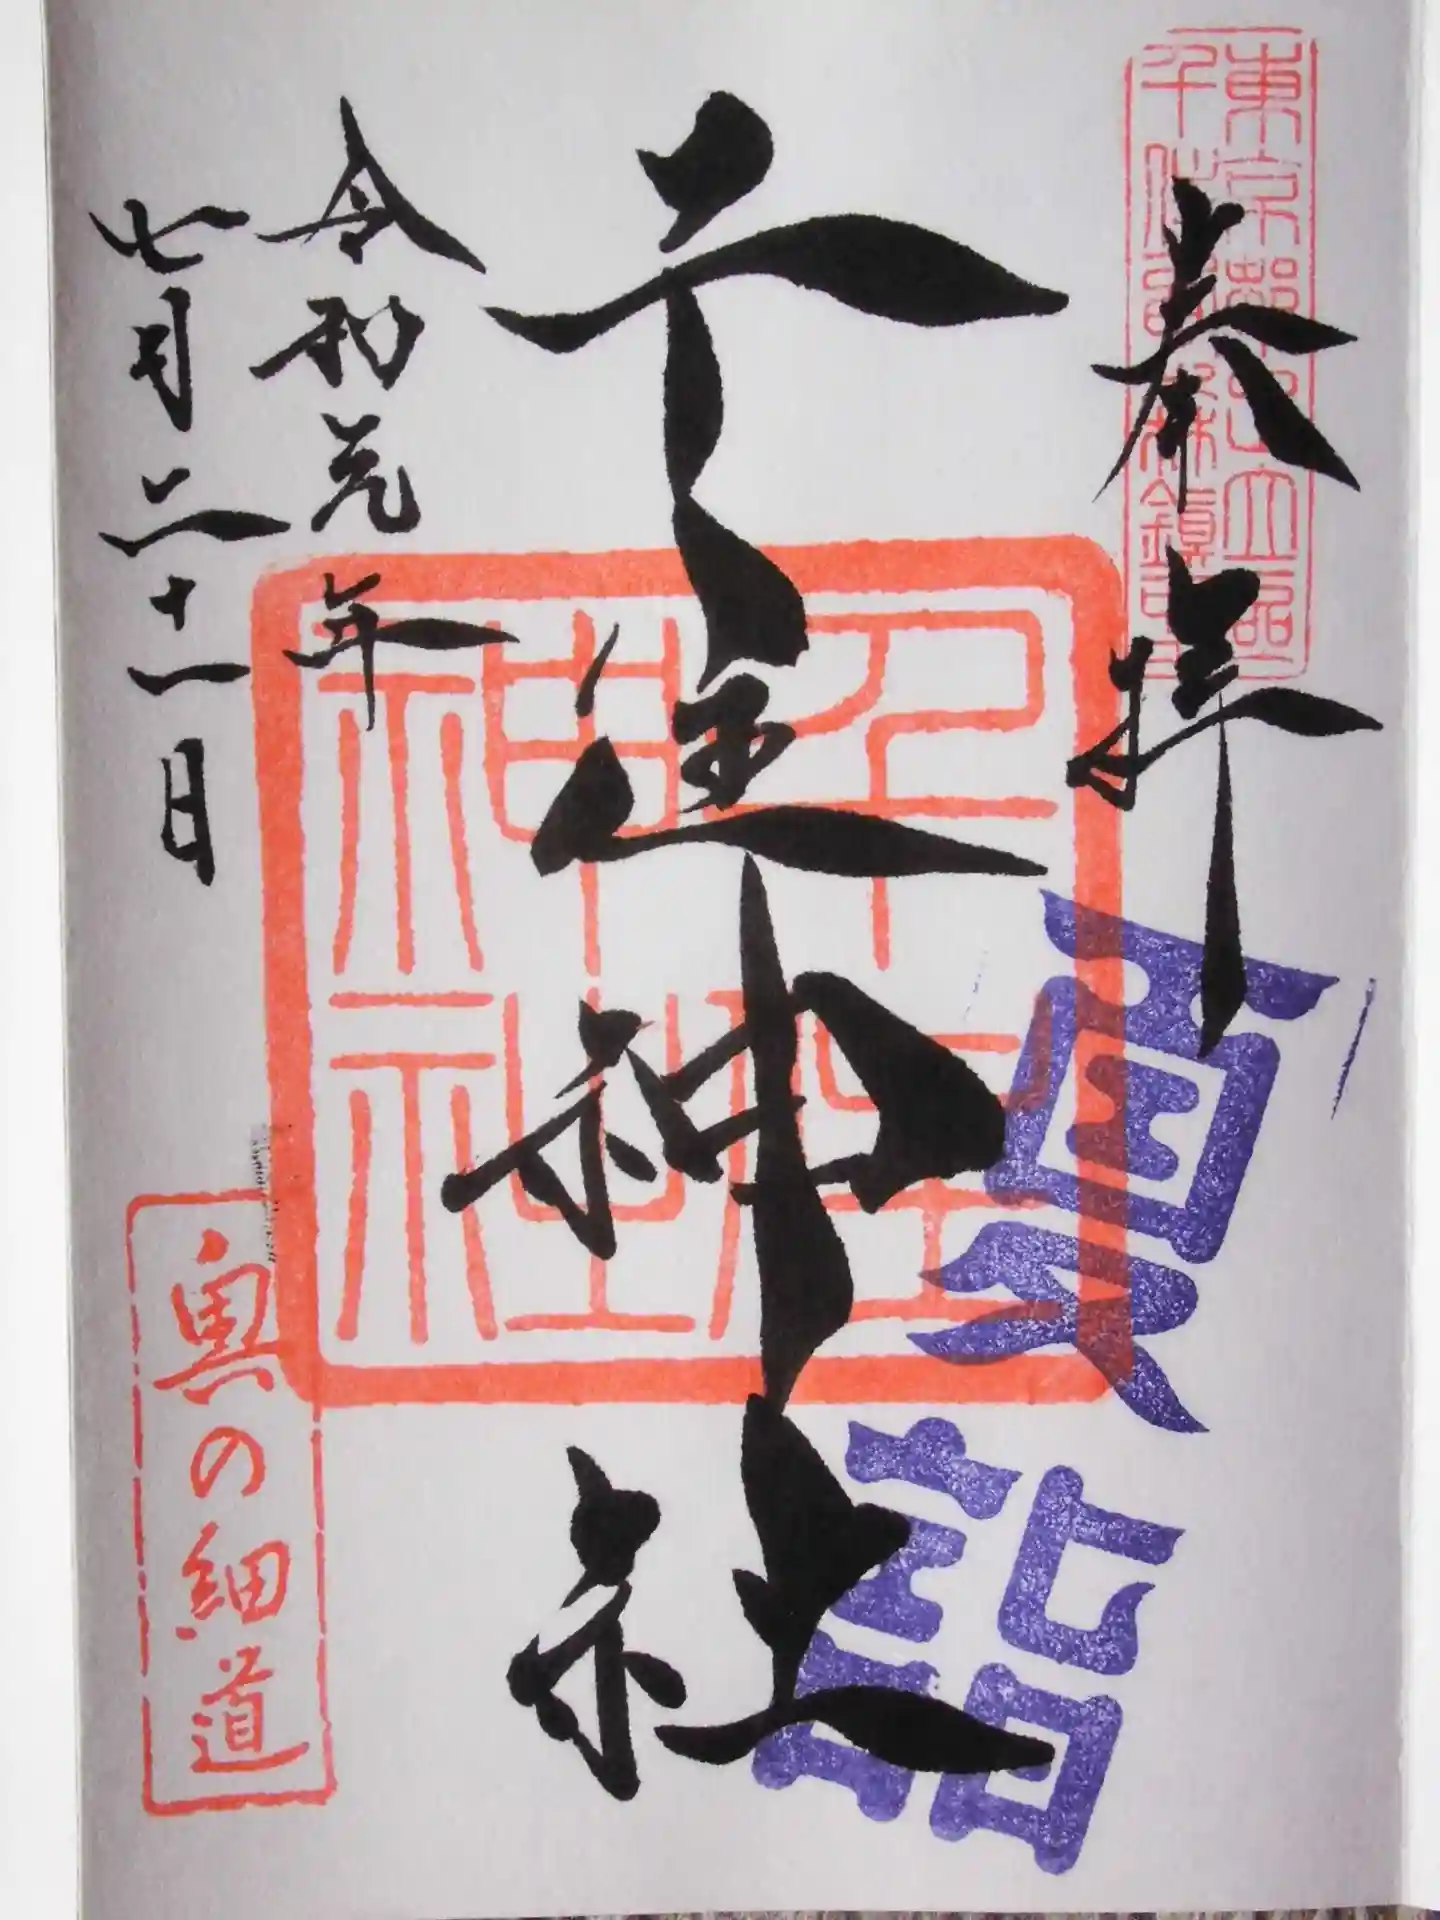 奉拝
東京都足立区
千住
千住神社
千住
神社
夏詣
令和元年
七月二十一日
奥の細道